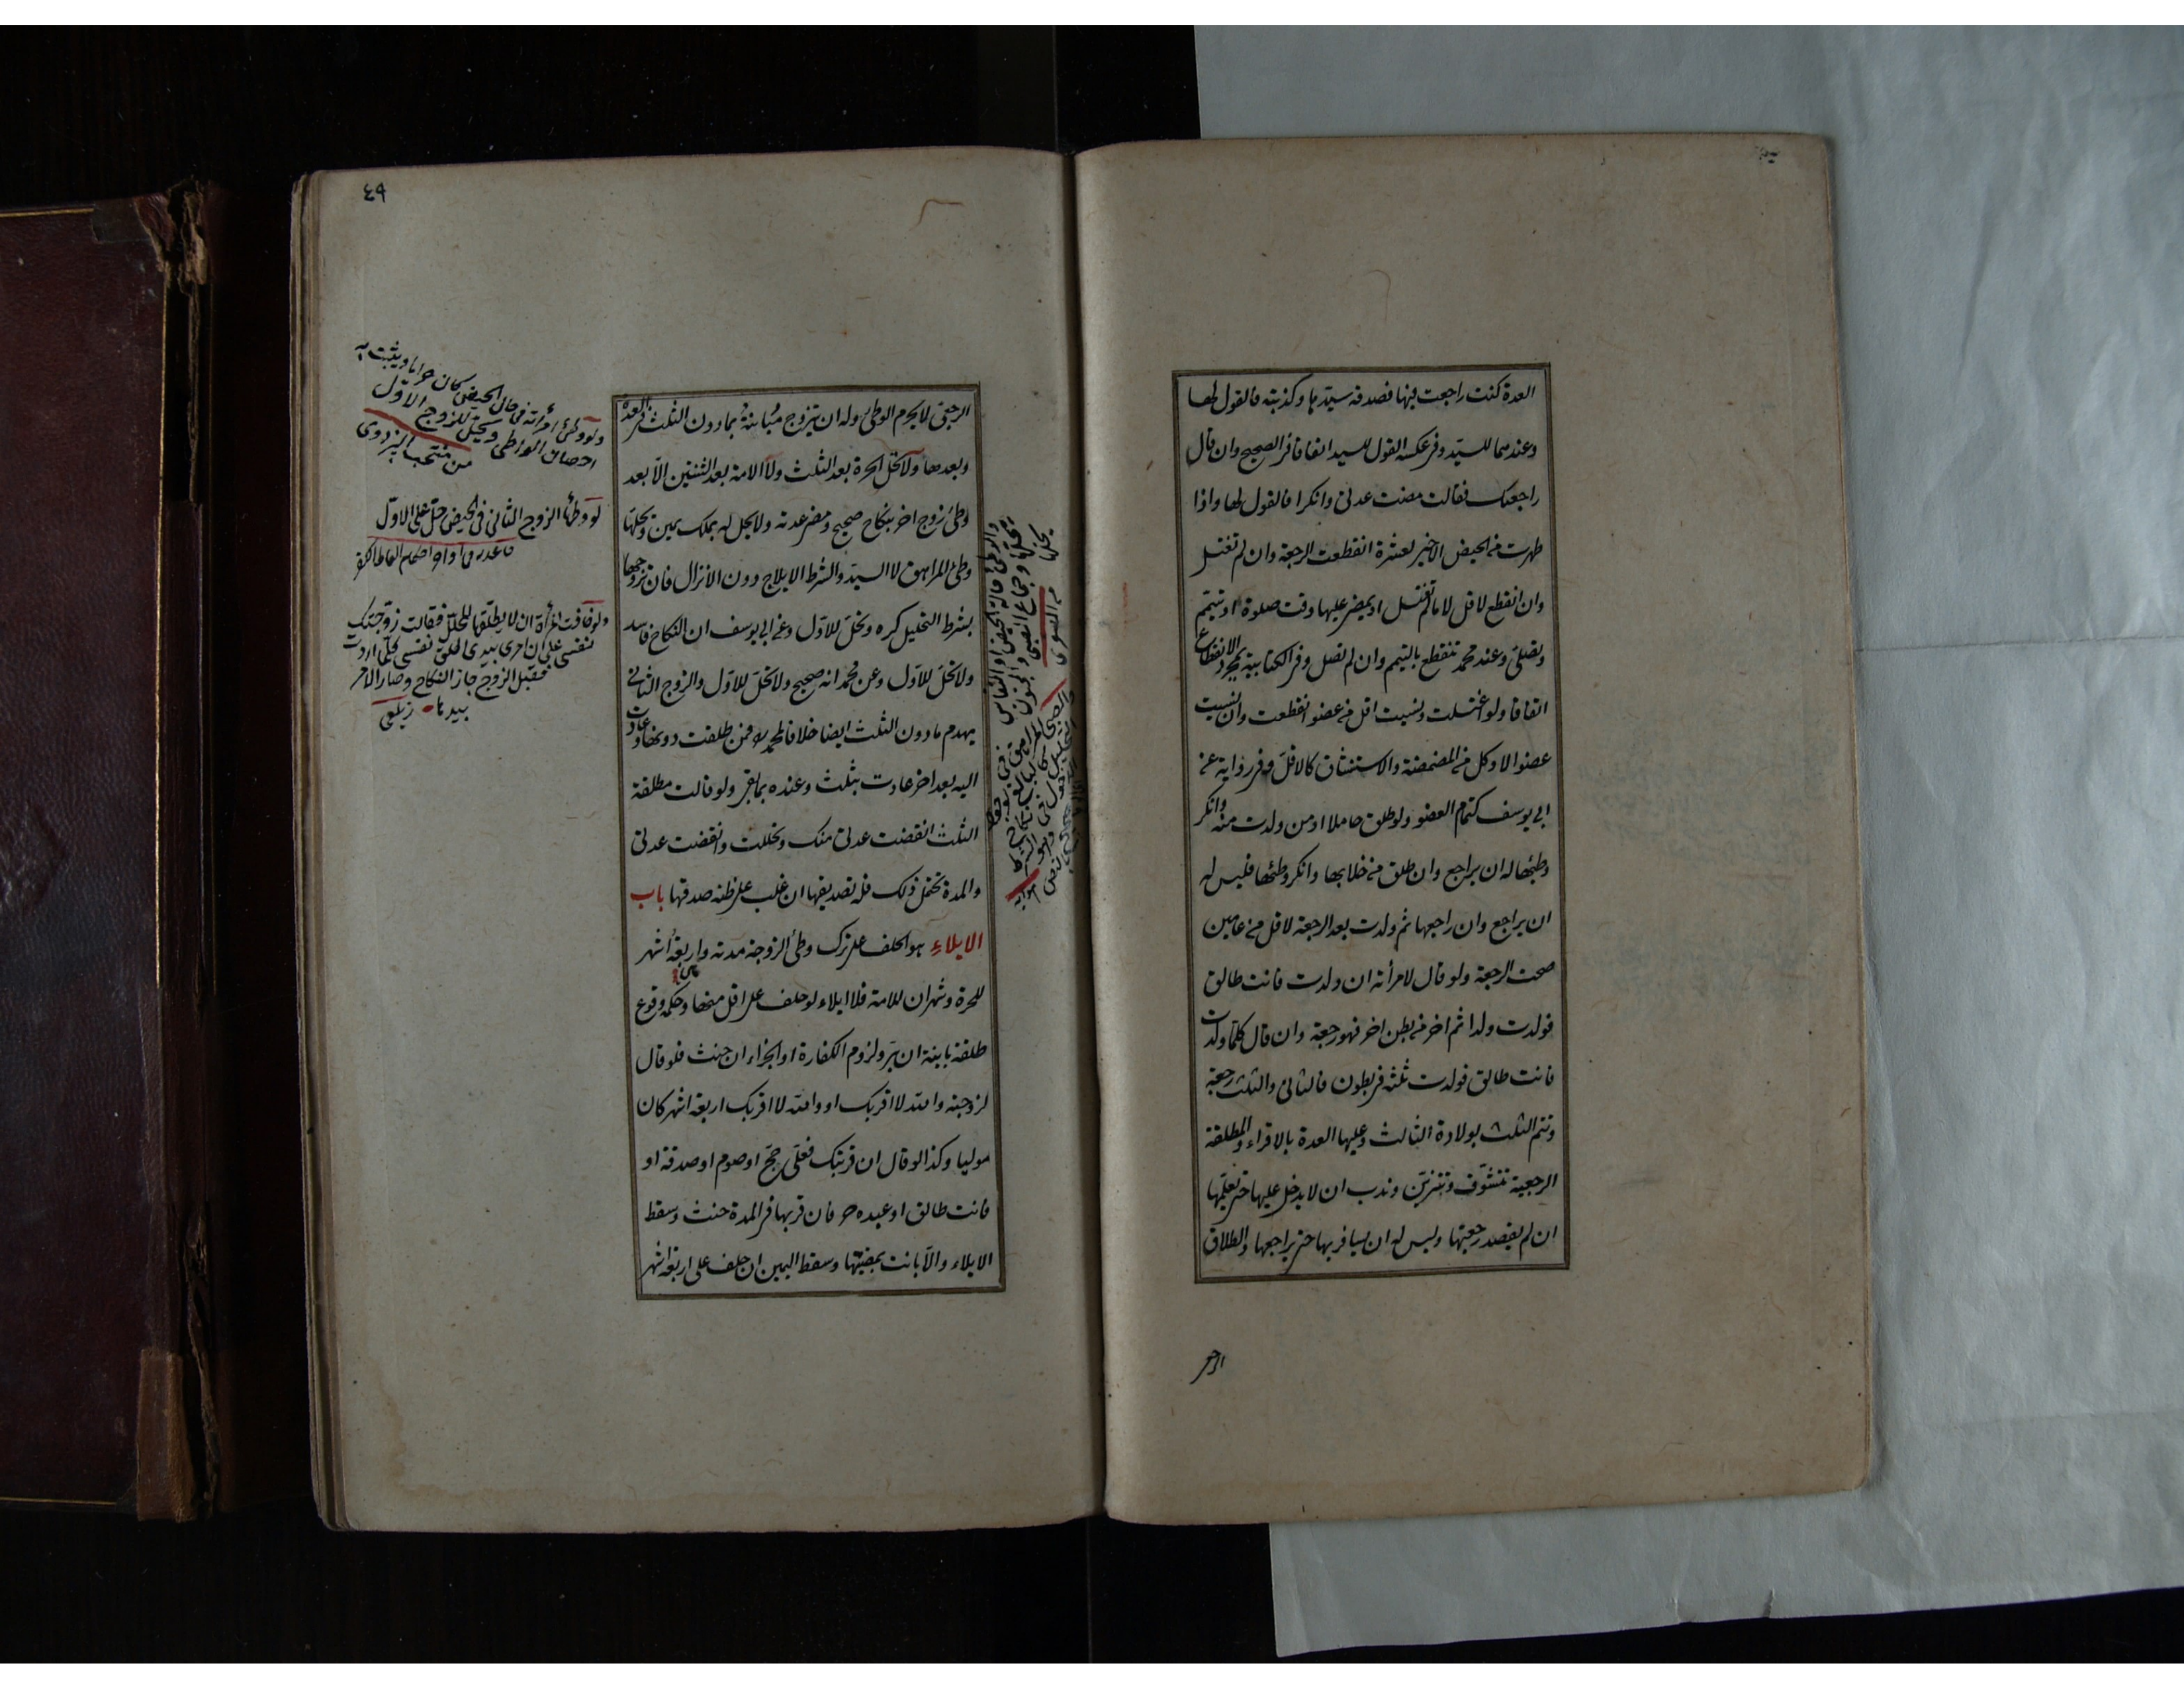 العدة كنت راجعت فيها فصدقه سيدها وكذبته فالقول لها
وعندهما للسيد وفى عكسه القول للسيد اتفاقا فى الصحيح وان قال
راجعتك فقالت مضت عدتى وانكرا فالقول لها واذا
طهرت من الحيض الاخير لعشرة انقطعت الرجعة وان لم تغتسل
وان انقطع لاقل لا ما لم تغتسل او يمضى عليها وقت صلوة او تتيمم
وتصلى وعند محمد تنقطع بالتيمم وان لم تصل وفى الكتابية بمجرد الانقطاع
اتفاقا ولو اغتسلت ونسيت اقل من عضو انقطعت وان نسيت
عضوا لا وكل من المضمضة والاستنشاق كالاقل وفى رواية عن
ابى يوسف كتمام العضو ولو طلق حاملا او من ولدت منه وانكر
وطئها له ان يراجع وان طلق من خلا بها وانكر وطئها فليس له
ان يراجع وان راجعها ثم ولدت بعد الرجعة لاقل من عامين
صحت الرجعة ولو قال لامرأته ان ولدت فانت طالق
فولدت ولدا ثم اخر من بطن اخر فهو رجعة وان قال كلما ولدت
فانت طالق فولدت ثلثة فى بطون فالثانى والثلث رجعة
وتتم الثلث بولادة الثالث وعليها العدة بالاقراء والمطلقة
الرجعية تتشوف وتتزين وندب ان لا يدخل عليها حتى يعلمها
ان لم يقصد رجعتها وليس له ان يسافر بها حتى يراجعها والطلاق
الرجعى
٤٩
الرجعى لا يحرم الوطئ وله ان يتزوج مبانته بما دون الثلث فى العدة
وبعدها ولا تحل الحرة بعد الثلث ولا الامة بعد الثنتين الا بعد
وطئ زوج اخر بنكاح صحيح ومضى عدته ولا يحل له بملك يمين ويحلها
وطئ المراهق لا السيد والشرط الايلاج دون الانزال فان تزوجها
بشرط التحليل كره وتحل للاول وعن ابى يوسف ان النكاح فاسد
ولا تحل للاول وعن محمد انه صحيح ولا تحل للاول والزوج الثانى
يهدم ما دون الثلث ايضا خلافا لمحمد فمن طلقت دونها وعادت
اليه بعد اخر عادت بثلث وعنده بما بقى ولو قالت مطلقة
الثلث انقضت عدتى منك وتحللت وانقضت عدتى
والمدة تحتمل ذلك فله تصديقها ان غلب على ظنه صدقها باب
الايلاء هو الحلف على ترك وطئ الزوجة مدته واربعة اشهر
للحرة وشهران للامة فلا ايلاء لو حلف على اقل منها وحكمه وقوع
طلقة باينة ان بر ولزوم الكفارة او الجزاء ان حنث فلو قال
لزوجته والله لا اقربك او والله لا اقربك اربعة اشهر كان
موليا وكذا لو قال ان قربتك فعلى حج او صوم او صدقة او
فانت طالق او عبده حر فان قربها فى المدة حنث وسقط
الايلاء والا بانت بمضيها وسقط اليمين ان حلف على اربعة اشهر
ولو وطئ امرأته فى حال الحيض كان حراما ويثبت به
احصان الواطى وتحل للزوج الاول
من منتخب البزدوى
لو وطئها الزوج الثانى فى الحيض حل على الاول
ولو خافت المرأة ان لا يطلقها المحلل فقالت زوجتك
نفسى على ان امرى بيدى اطلق نفسى كلما اردت
فقبل الزوج جاز النكاح وصار الامر
بيدها زيلعى